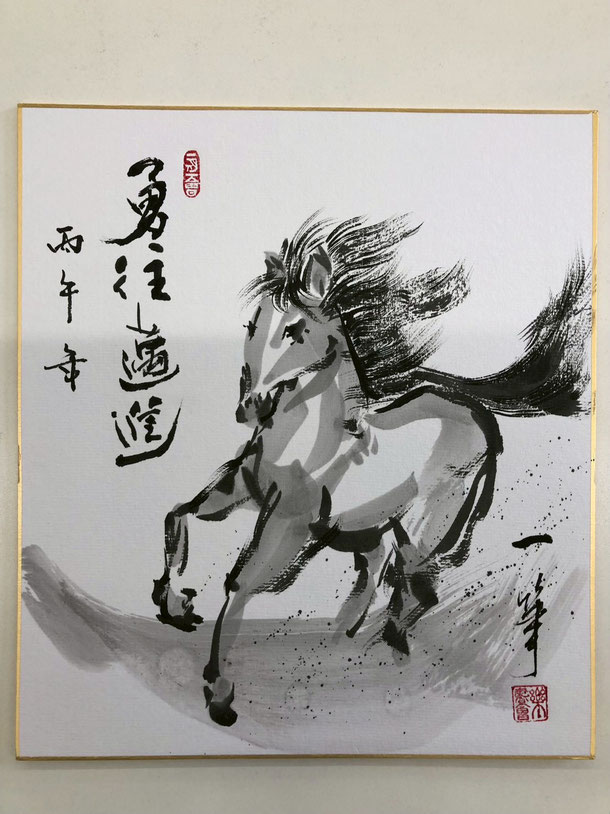 勇往邁進
丙午年
一筆